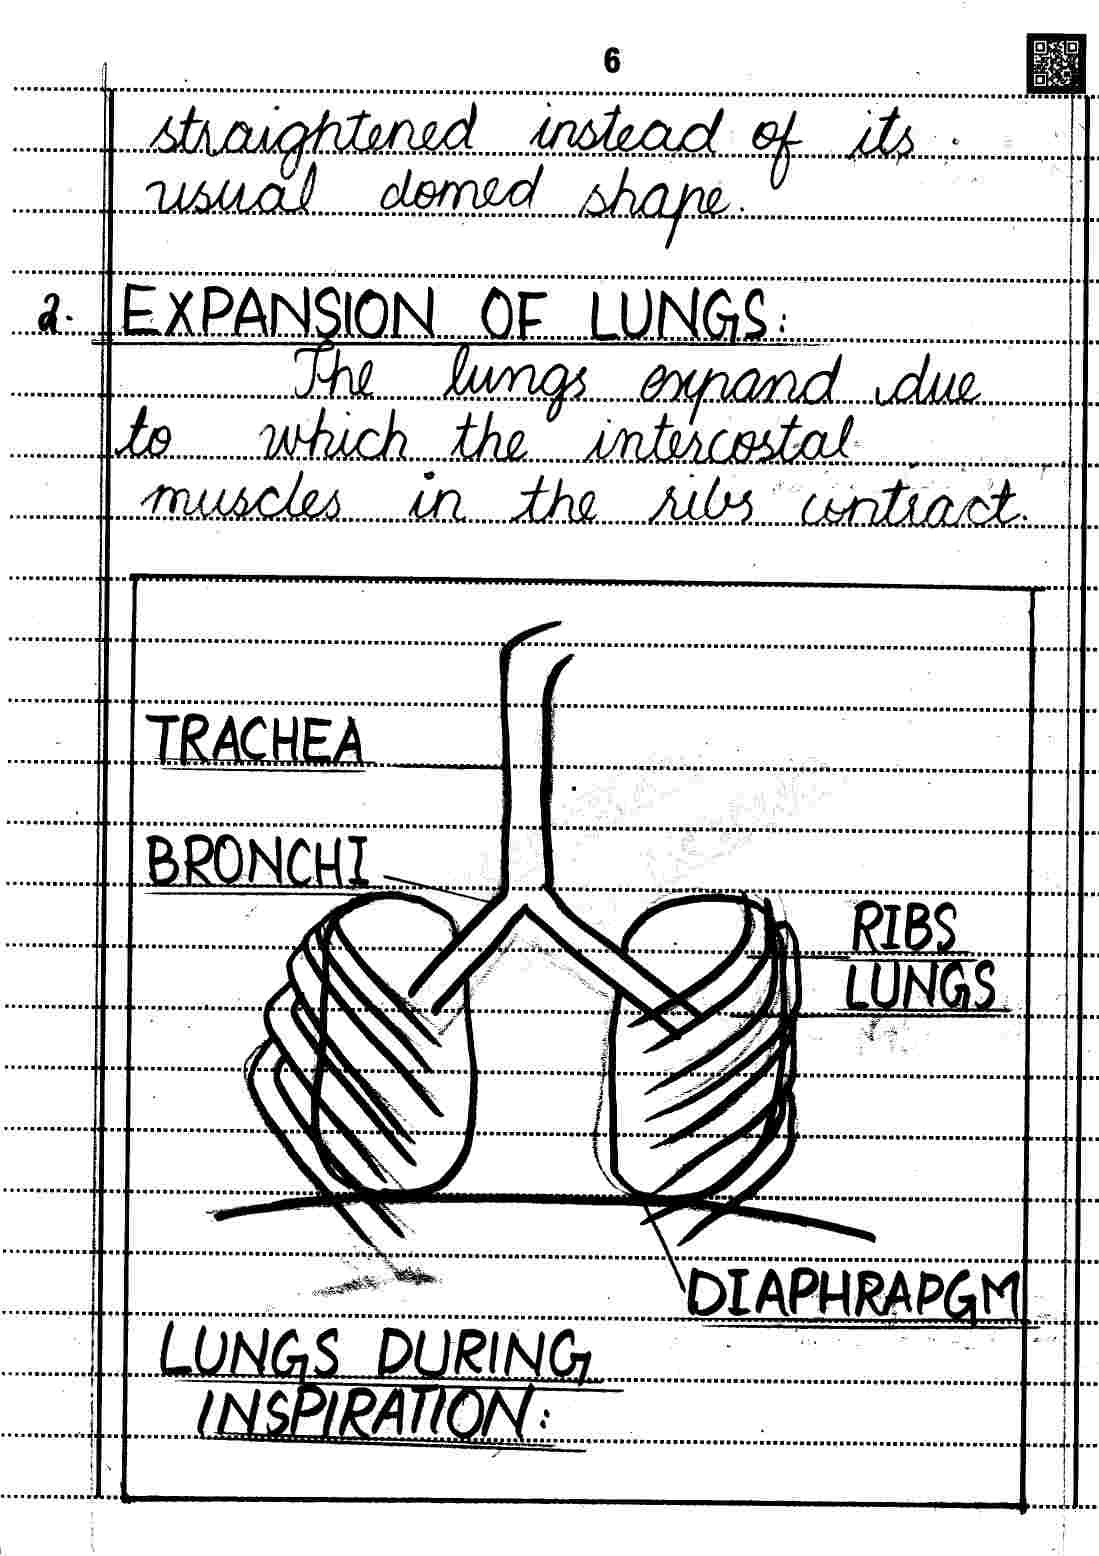 6
straightened instead of its
usual domed shape.
2. EXPANSION OF LUNGS:
The lungs expand due
to which the intercostal
muscles in the ribs contract.
TRACHEA
BRONCHI
RIBS
LUNGS
DIAPHRAPGM
LUNGS DURING
INSPIRATION: